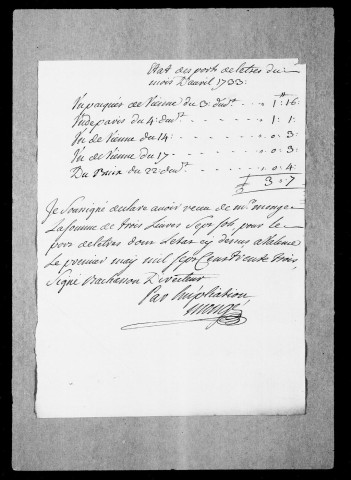 Etat des ports de letres du
mois D'avril 1733:
Un paquet de vienne du 3: dud.t - - 1tt 16:
Un de paris du 4: dud.t - - - 1: 1:
Un de vienne du 14: - - - - 0: 3:
Un de vienne du 17 - - - - - 0: 3:
Du du 22 dud.t - - - 0: 4:
3 : 7
Je Soussigné declare avoir receu de mr. monge
La somme de trois Livres Sept sols pour le
port de letres dont Letat cy dessus a valance
Le premier may mil sept Cent trente trois,
Signé Directeur
Par Ampliation
monge